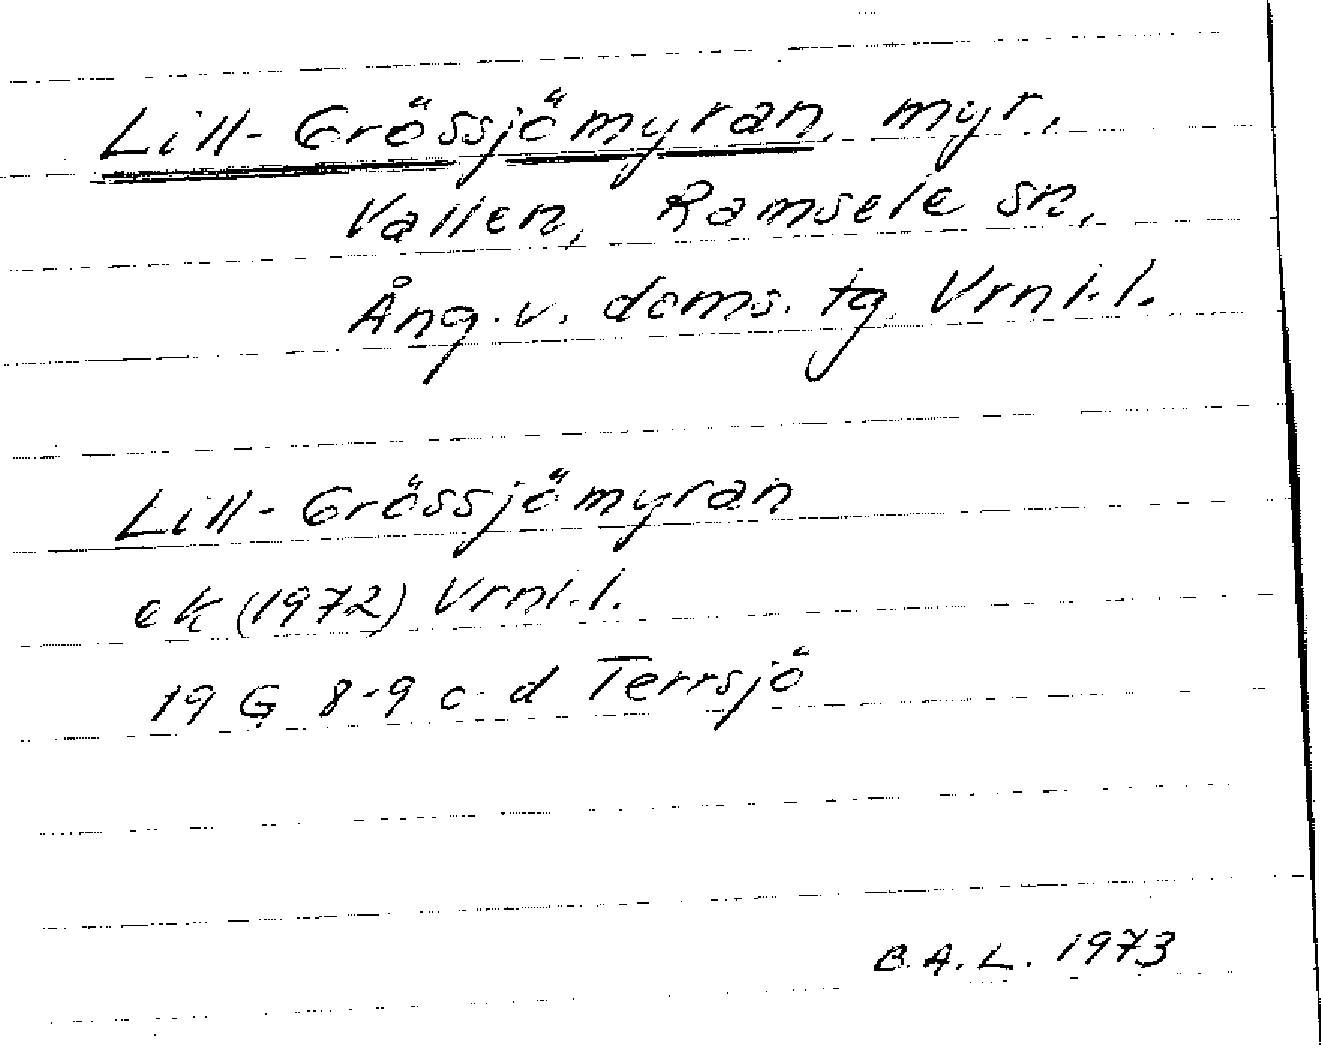 Lill-Grössjömyran, myr,
Vallen, Ramsele sn,
Ång. v. doms. tg Vrnl. l.
Lill-Grössjömyran
ek (1972) Vrnl. l.
19 G 8-9 c-d Terrsjö
B.A.L. 1973